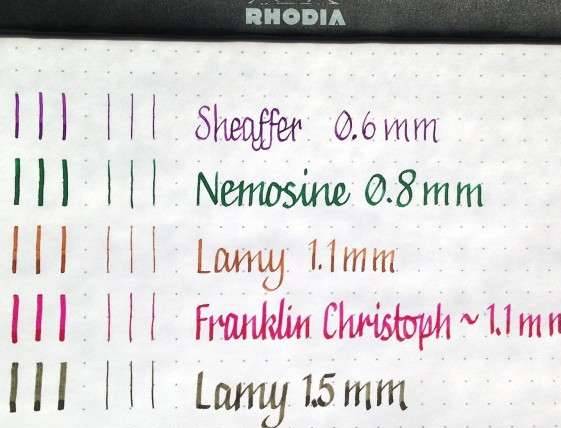 RHODIA
Sheaffer 0.6 mm
Nemosine 0.8 mm
Lamy 1.1 mm
Franklin Christoph ~ 1.1 m
Lamy 1.5 mm